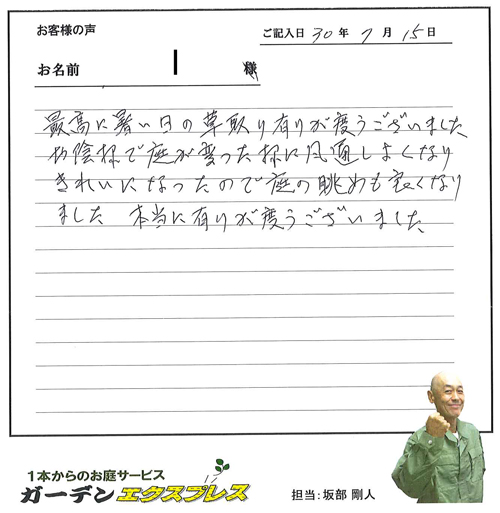 お客様の声
ご記入日 30年 7月 15日
お名前 様
最高に暑い日の草取り有りが度うございました
お陰様で庭が変った様に風通しよくなり
きれいになったので庭の眺めも良くなり
ました 本当に有りが度うございました
1本からのお庭サービス
ガーデンエクスプレス
担当:坂部 剛人